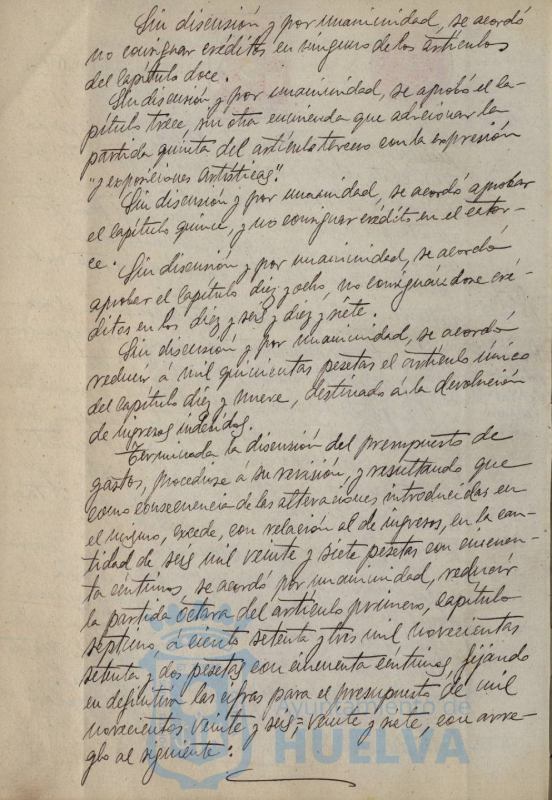 Sin discusión y por unanimidad, se acordó
no consignar créditos en ninguno de los artículos
del capítulo doce.
Sin discusión y por unanimidad, se aprobó el ca-
pítulo trece, sin otra enmienda que adicionar la
partida quinta del artículo tercero con la expresión
"y exposiciones artísticas".
Sin discusión y por unanimidad, se acordó aprobar
el capítulo quince, y no consignar crédito en el cator-
ce.
Sin discusión y por unanimidad, se acordó
aprobar el capítulo diez y ocho, no consignándose cré-
ditos en los diez y seis y diez y siete.
Sin discusión y por unanimidad, se acordó
reducir á mil quinientas pesetas el artículo único
del capítulo diez y nueve, destinado á la devolución
de ingresos indebidos.
Terminada la discusión del presupuesto de
gastos, procedióse á su revisión, y resultando que
como consecuencia de las alteraciones introducidas en
el mismo, excede, con relación al de ingresos, en la can-
tidad de seis mil veinte y siete pesetas con cincuen-
ta céntimos, se acordó por unanimidad, reducir
la partida octava del artículo primero, capítulo
séptimo, á ciento setenta y tres mil novecientas
setenta y dos pesetas con cincuenta céntimos, fijando
en definitiva las cifras para el presupuesto de mil
novecientos veinte y seis = veinte y siete, con arre-
glo al siguiente:
Ayuntamiento de
HUELVA